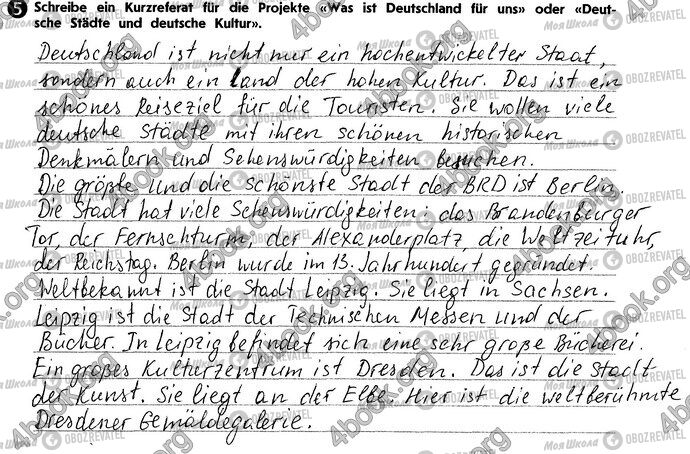 5 Schreibe ein Kurzreferat für die Projekte «Was ist Deutschland für uns» oder «Deut-
sche Städte und deutsche Kultur».
Deutschland ist nicht nur ein hochentwickelter Staat,
sondern auch ein Land der hohen Kultur. Das ist ein
schönes Reiseziel für die Touristen. Sie wollen viele
deutsche Städte mit ihren schönen historischen
Denkmälern und Sehenswürdigkeiten besuchen.
Die größte und die schönste Stadt der BRD ist Berlin.
Die Stadt hat viele Sehenswürdigkeiten: das Brandenburger
Tor, der Fernschturm, der Alexanderplatz, die Weltzeituhr,
der Reichstag. Berlin wurde im 13. Jahrhundert gegründet.
Weltbekannt ist die Stadt Leipzig. Sie liegt in Sachsen.
Leipzig ist die Stadt der Technischen Messen und der
Bücher. In Leipzig befindet sich eine sehr große Bücherei.
Ein großes Kulturzentrum ist Dresden. Das ist die Stadt
der Kunst. Sie liegt an der Elbe. Hier ist die weltberühmte
Dresdener Gemäldegalerie.